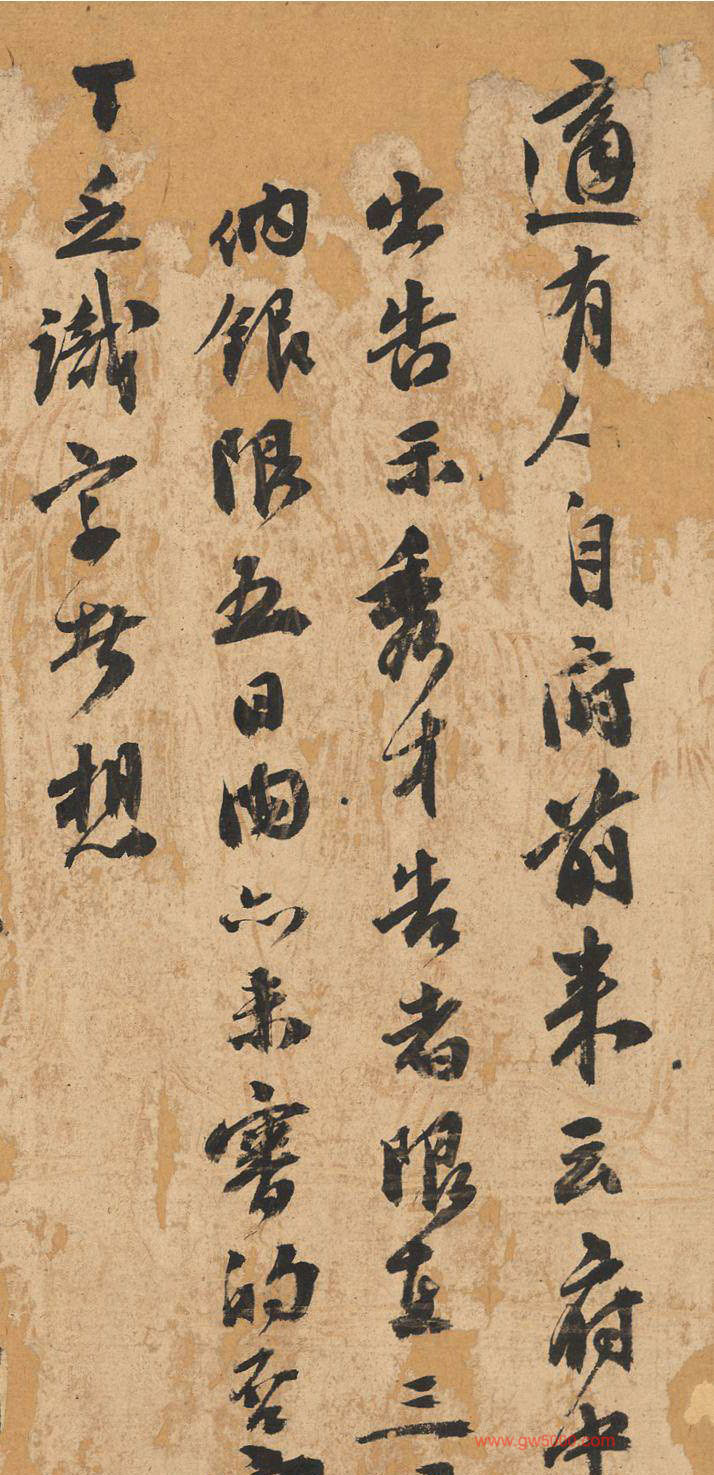 適有人自府前来云府中
出告示秀才告者限在三
納銀限五日內亦未審的否
丁乏識字者想
www.gw5000.com